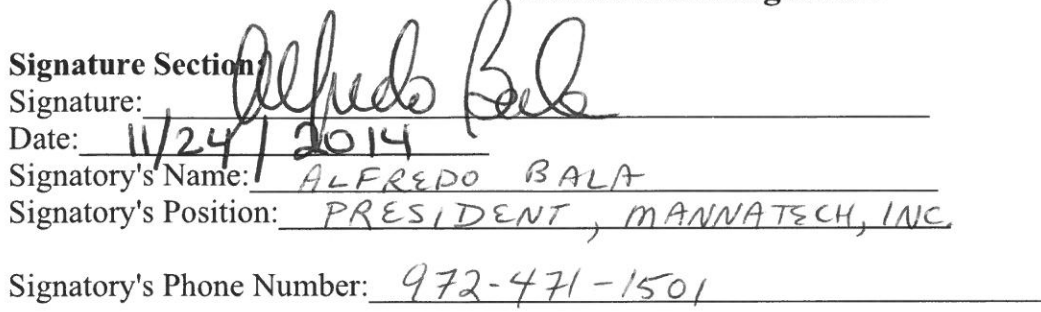 Signature Section:
Signature: Alfredo Bala
Date: 11/24/2014
Signatory's Name: ALFREDO BALA
Signatory's Position: PRESIDENT, MANNATECH, INC.
Signatory's Phone Number: 972-471-1501